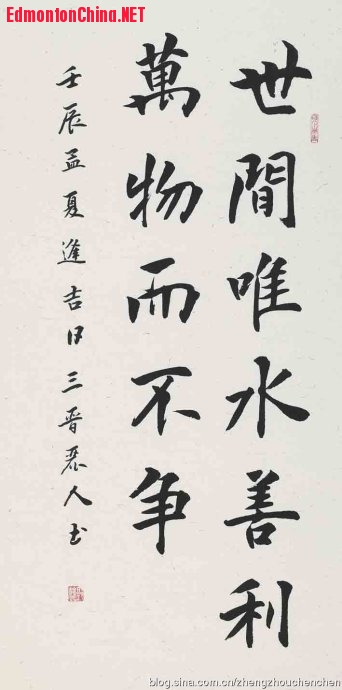 EdmontonChina.NET
世間唯水善利
萬物而不争
壬辰孟夏逢吉日三晉丑人书
blog.sina.com.cn/zhengzhouchenchen